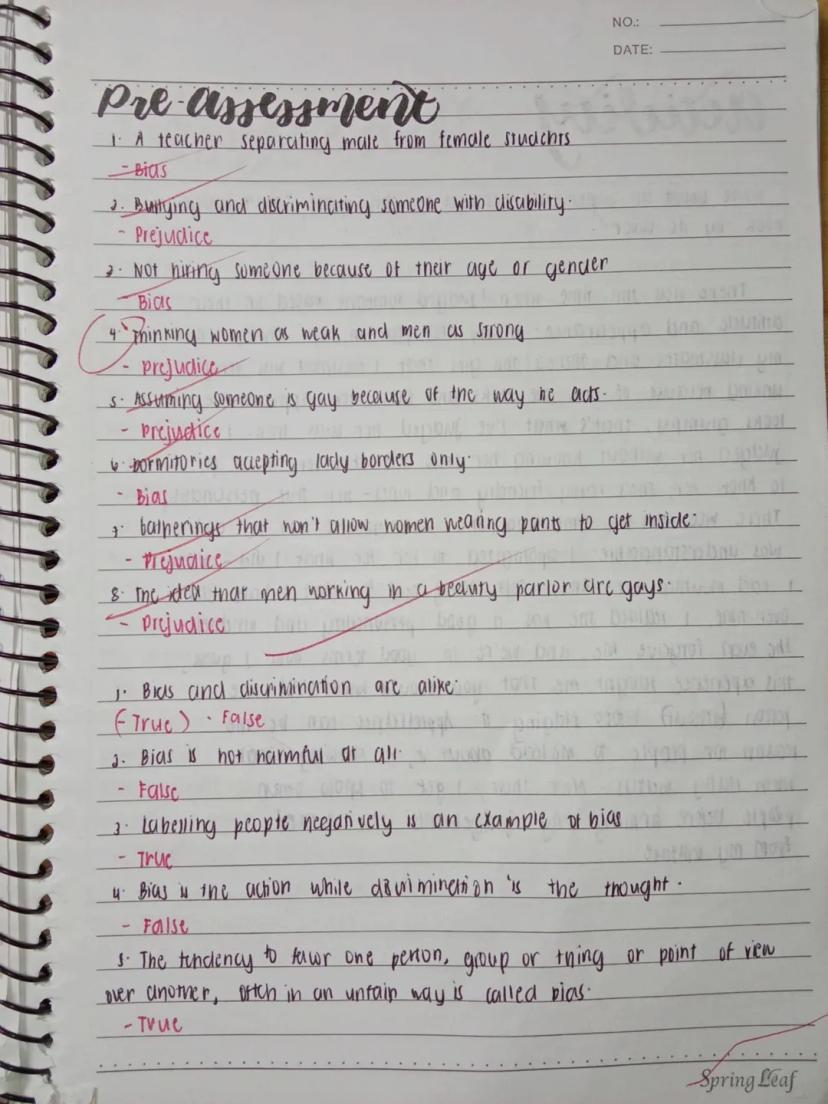 NO.:
DATE:
Pre-assessment
1. A teacher separating male from female students
- Bias
2. Bullying and discriminating someone with disability.
- Prejudice
3. Not hiring someone because of their age or gender
- Bias
4. Thinking women as weak and men as strong
- prejudice
5. Assuming someone is gay because of the way he acts.
- Prejudice
6. Dormitories accepting lady borders only.
- Bias
7. Gatherings that won't allow women wearing pants to get inside.
- Prejudice
8. The idea that men working in a beauty parlor are gays.
- Prejudice
1. Bias and discrimination are alike.
(-True) . False
2. Bias is not harmful at all.
- False
3. Labelling people negatively is an example of bias
- True
4. Bias is the action while discrimination is the thought.
- False
5. The tendency to favor one person, group or thing or point of view
over another, often in an unfair way is called bias.
- True
Spring Leaf